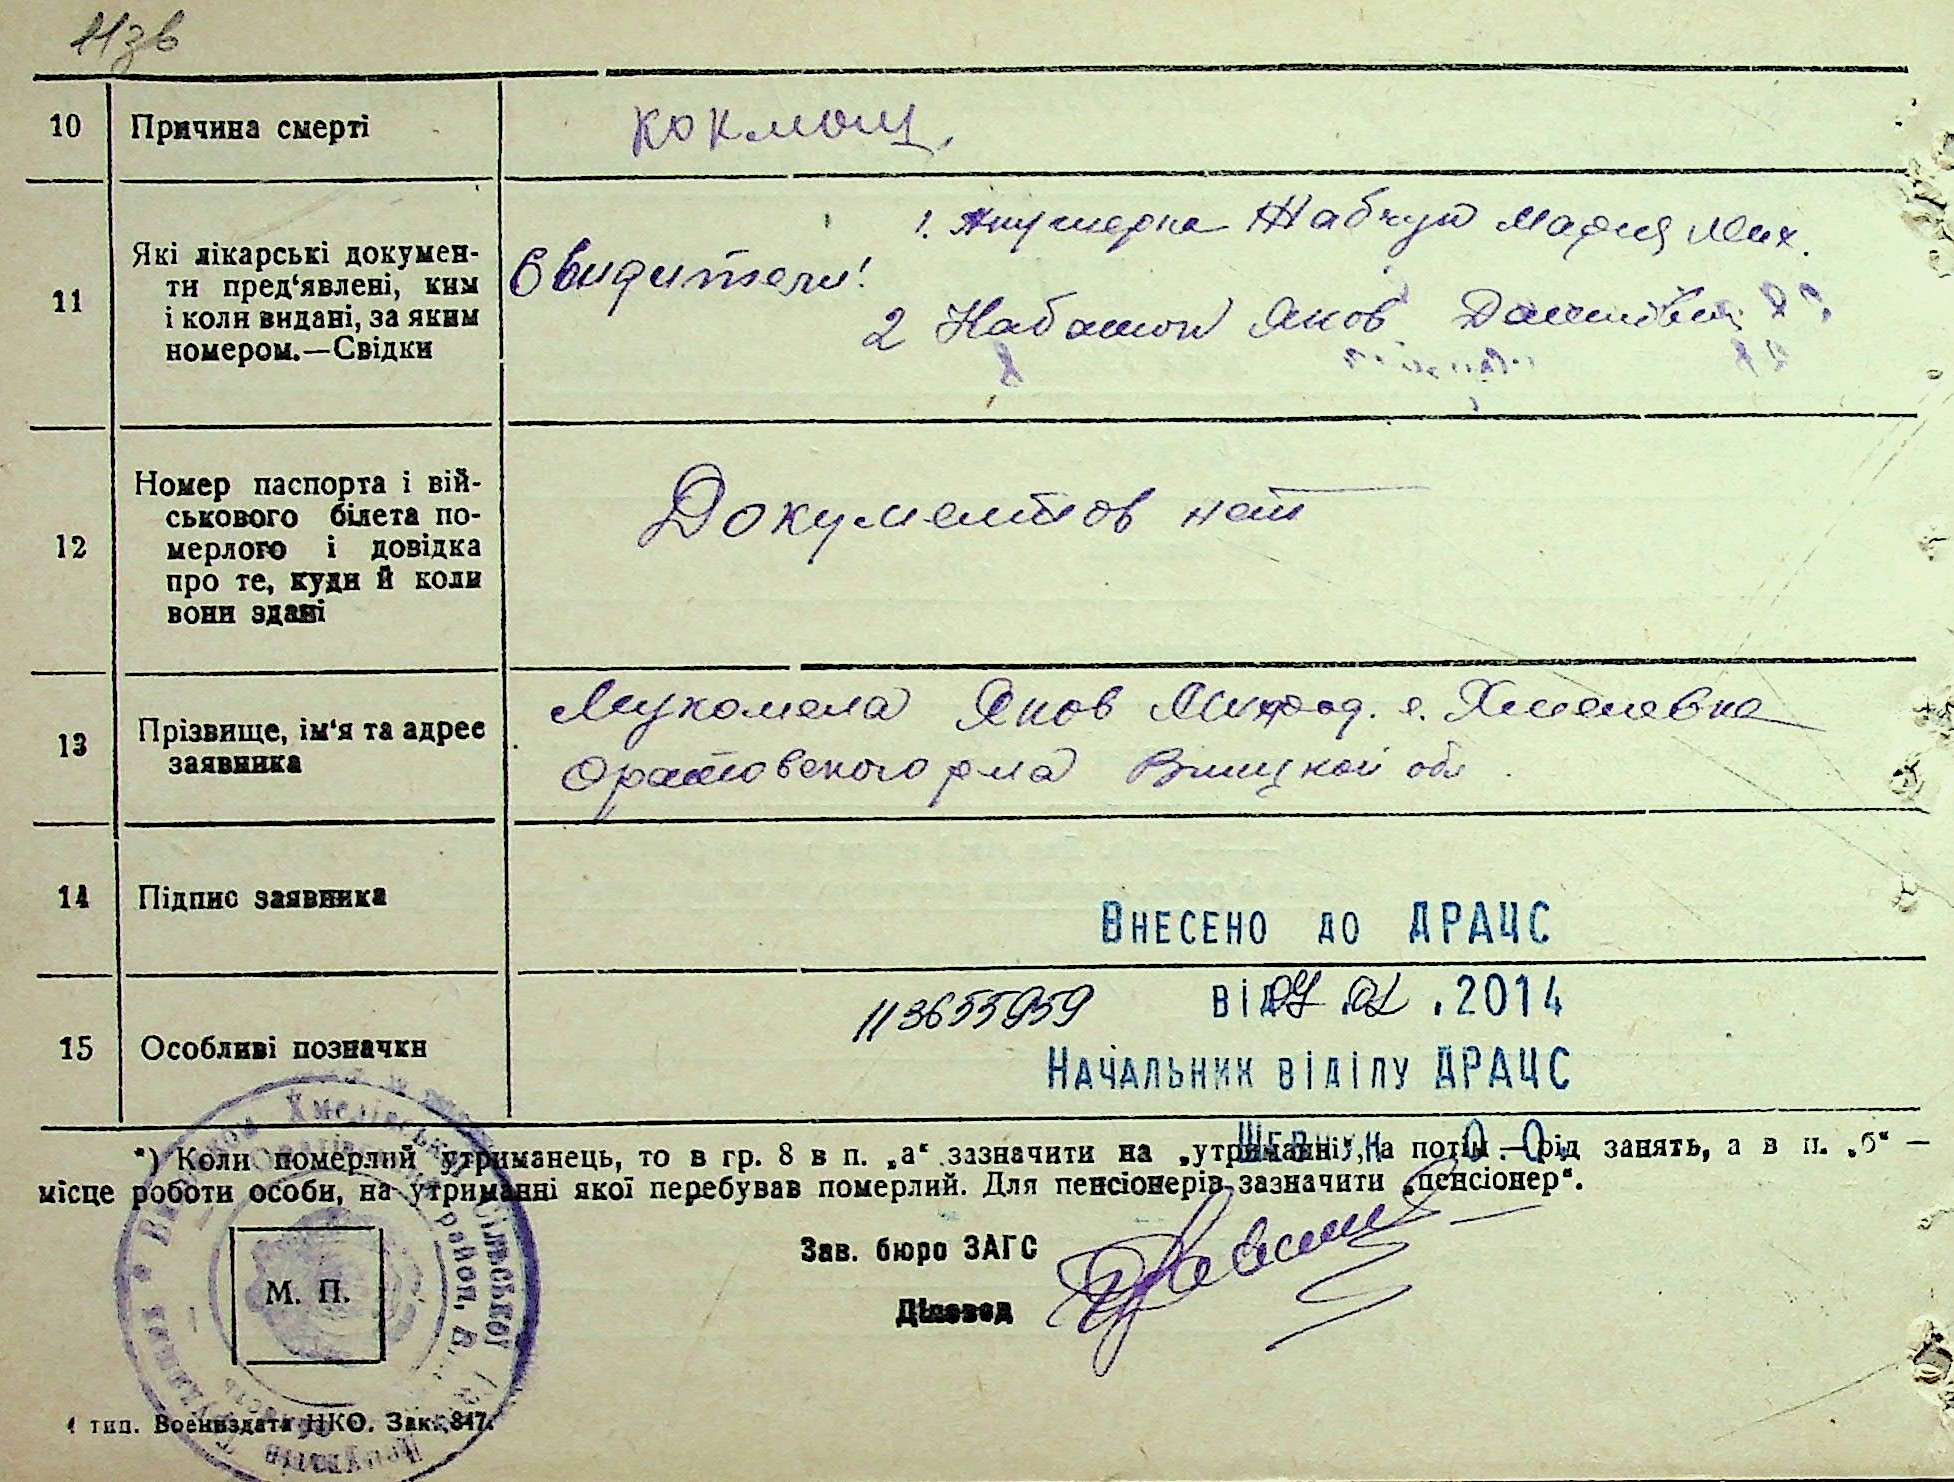 113в
10 Причина смерті коклюш.
11 Які лікарські документи пред‘явлені, ким і коли видані, за яким номером.—Свідки
Свидители!
1. Акушерка Жабчук Мария Мих.
2 Яков
12 Номер паспорта і військового білета померлого і довідка про те, куди й коли вони здані
Документов нет
13 Прізвище, ім‘я та адрес заявника
Мукомела Яков с. Хмелевка
Оратовского р-на Вницкой обл.
14 Підпис заявника
Внесено до ДРАЦС
від .2014
113655959
15 Особливі позначки
Начальник відділу ДРАЦС
Шевчук О.О.
*) Коли померлий утриманець, то в гр. 8 в п. „а“ зазначити на „утриманні“, а потім — рід занять, а в п. „б“ —
місце роботи особи, на утриманні якої перебував померлий. Для пенсіонерів зазначити „пенсіонер“.
Зав. бюро ЗАГС
Діловод
М. П.
1 тип. Воениздата НКО. Зак. 347.